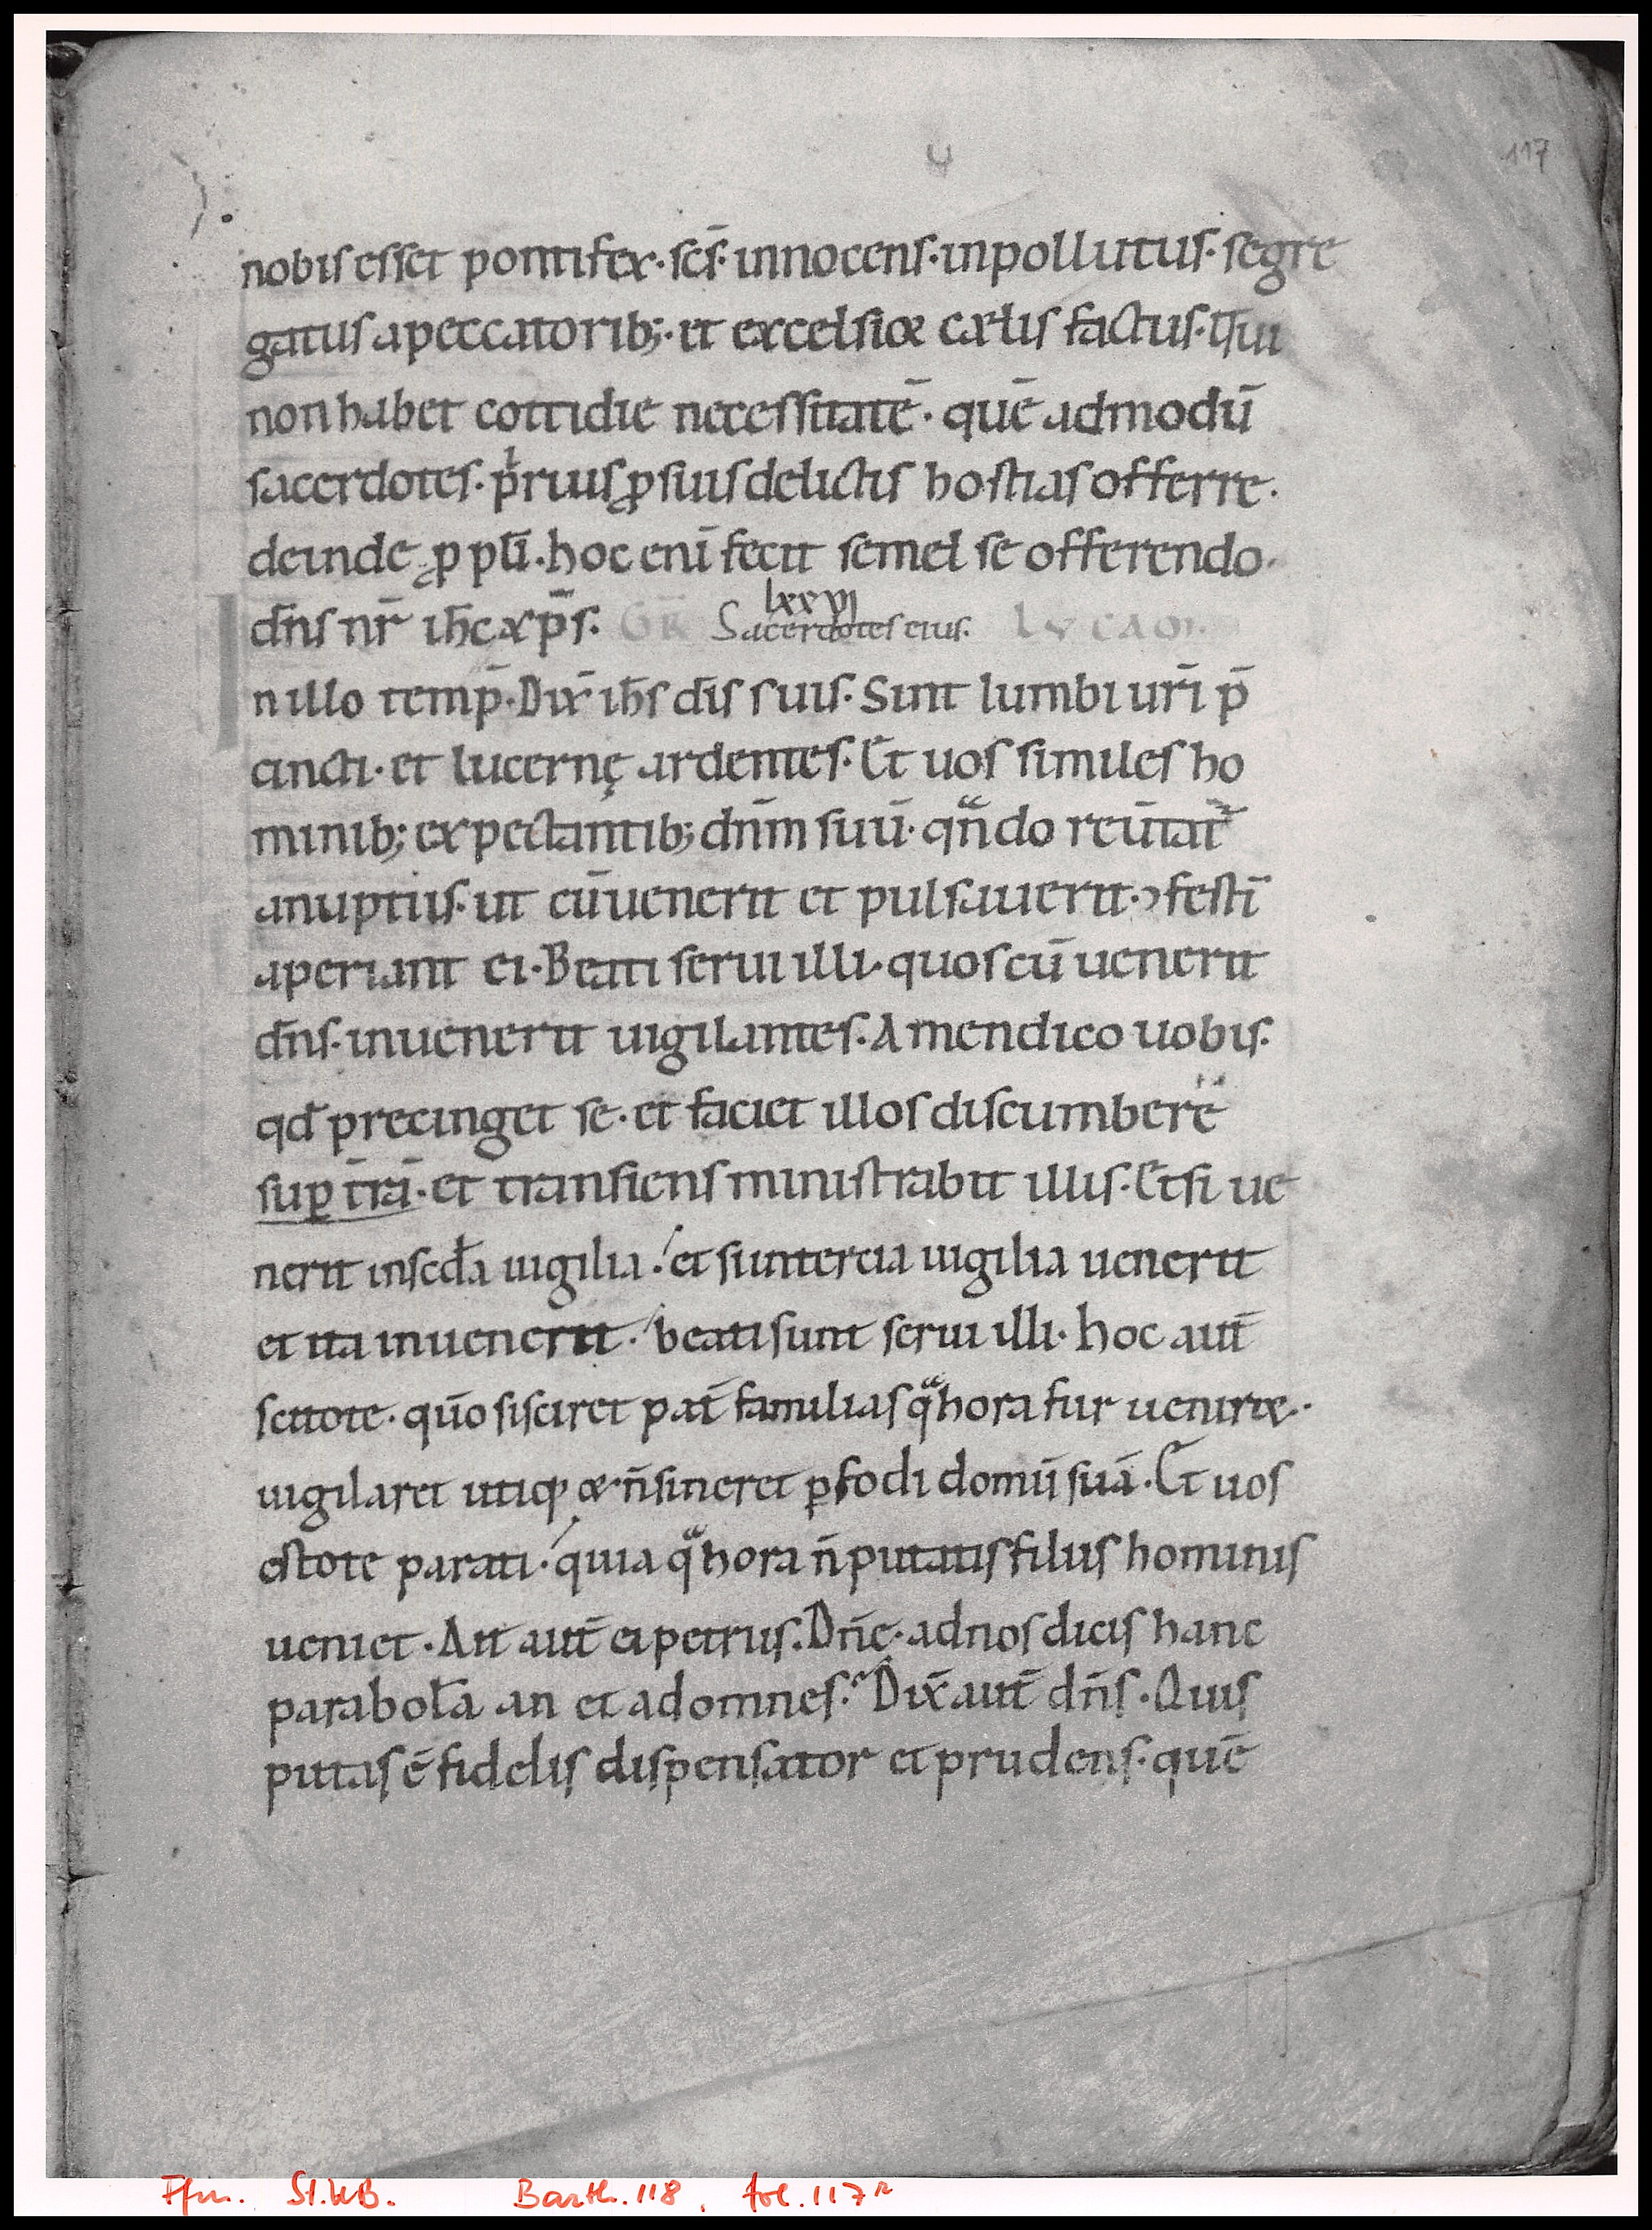 4
117
nobis esset pontifex· scs̄· innocens· inpollutus· segre
gatus a peccatorib;· et excelsior cælis factus· qui
non habet cottidie necessitatē· quē admodū
sacerdotes· prius ꝓ suis delictis hostias offerre·
deinde ꝓ pli̅· hoc eni̅ fecit semel se offerendo·
dn̄s nr̄ ih̄c xp̄s. GR̄ Sacerdotes eius. LUCAM
lxxvi
In illo temp̄· Dix̄ ih̄s dīs suis· Sint lumbi ur̄i p̄
cincti· et lucernę ardentes· Et uos similes ho
minib; expectantib; dn̄m suū· qn̄do reūtat̄
a nuptiis· ut cū uenerit et pulsauerit· ɔfestī
aperiant ei· Beati serui illi· quos cū uenerit
dn̄s· inuenerit uigilantes· Amen dico uobis·
qđ precinget se· et faciet illos discumbere
suꝑ tr̄ā· et transiens ministrabit illis· Et si ue
nerit in scđa uigilia· et si in tercia uigilia uenerit
et ita inuenerit· beati sunt serui illi· hoc aut̄
scitote· qūo si sciret pat̄ familias qͣ hora fur ueniret·
uigilaret utiqꝫ & n̄ sineret ꝑfodi domū suā· Et uos
estote parati· quia qͣ hora n̄ putatis filius hominis
ueniet· Ait aut̄ ei petrus· Dn̄e· ad nos dicis hanc
parabolā an et ad omnes· Dix̄ aut̄ dn̄s· Quis
putas ē fidelis dispensator et prudens· quē
Ffm. St.UB. Barth. 118, fol. 117r